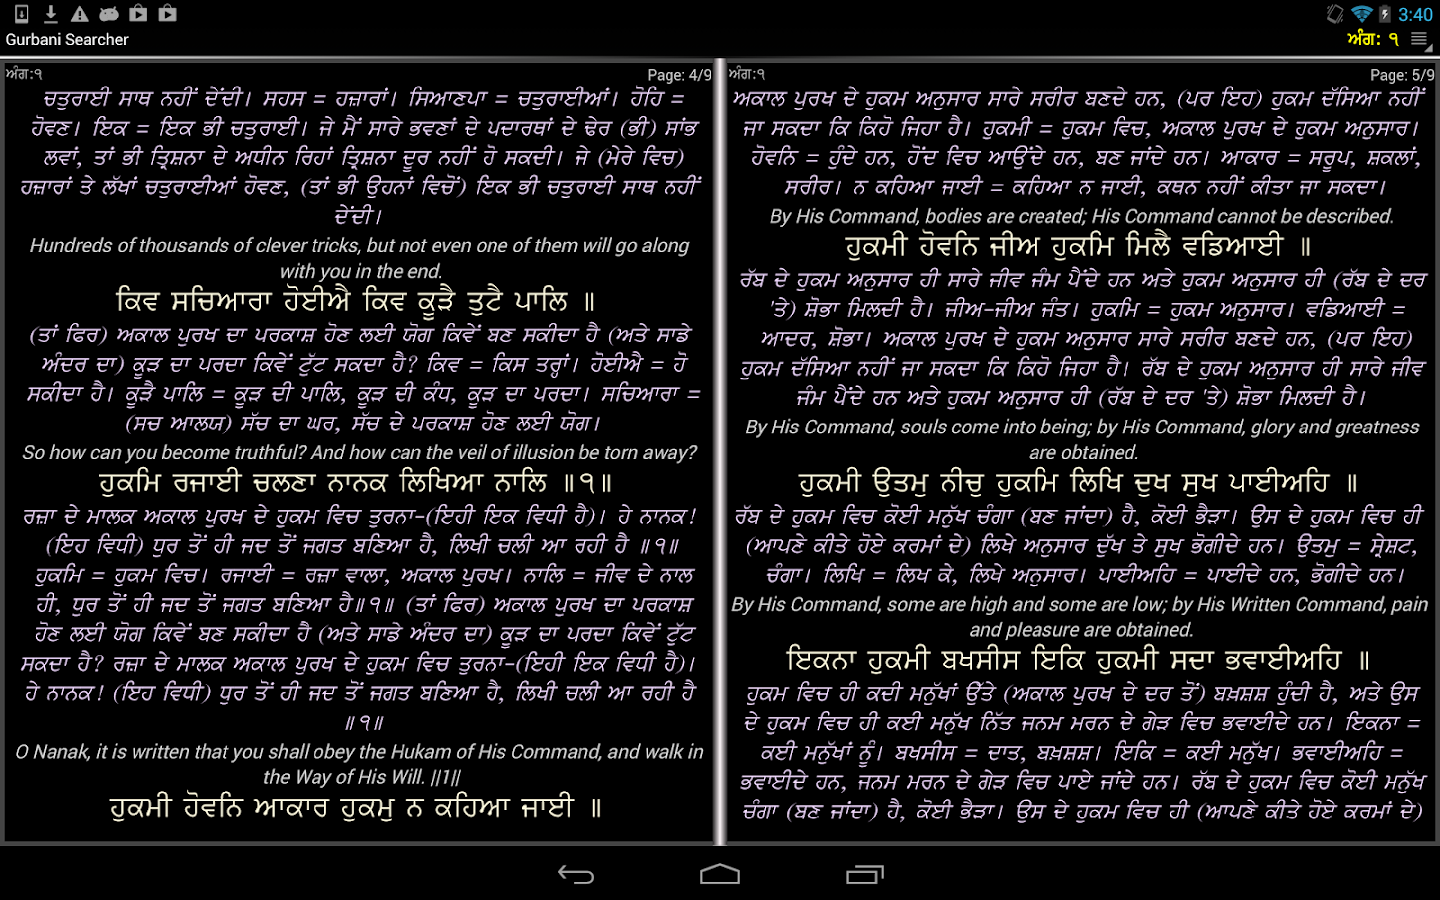 3:40
Gurbani Searcher
ਅੰਗ: ੧
ਅੰਗ:੧
Page: 4/9
ਚਤੁਰਾਈ ਸਾਥ ਨਹੀਂ ਦੇਂਦੀ। ਸਹਸ = ਹਜ਼ਾਰਾਂ। ਸਿਆਣਪਾ = ਚਤੁਰਾਈਆਂ। ਹੋਹਿ =
ਹੋਵਣ। ਇਕ = ਇਕ ਭੀ ਚਤੁਰਾਈ। ਜੇ ਮੈਂ ਸਾਰੇ ਭਵਣਾਂ ਦੇ ਪਦਾਰਥਾਂ ਦੇ ਢੇਰ (ਭੀ) ਸਾਂਭ
ਲਵਾਂ, ਤਾਂ ਭੀ ਤ੍ਰਿਸ਼ਨਾ ਦੇ ਅਧੀਨ ਰਿਹਾਂ ਤ੍ਰਿਸ਼ਨਾ ਦੂਰ ਨਹੀਂ ਹੋ ਸਕਦੀ। ਜੇ (ਮੇਰੇ ਵਿਚ)
ਹਜ਼ਾਰਾਂ ਤੇ ਲੱਖਾਂ ਚਤੁਰਾਈਆਂ ਹੋਵਣ, (ਤਾਂ ਭੀ ਉਹਨਾਂ ਵਿਚੋਂ) ਇਕ ਭੀ ਚਤੁਰਾਈ ਸਾਥ ਨਹੀਂ
ਦੇਂਦੀ।
Hundreds of thousands of clever tricks, but not even one of them will go along
with you in the end.
ਕਿਵ ਸਚਿਆਰਾ ਹੋਈਐ ਕਿਵ ਕੂੜੈ ਤੁਟੈ ਪਾਲਿ ॥
(ਤਾਂ ਫਿਰ) ਅਕਾਲ ਪੁਰਖ ਦਾ ਪਰਕਾਸ਼ ਹੋਣ ਲਈ ਯੋਗ ਕਿਵੇਂ ਬਣ ਸਕੀਦਾ ਹੈ (ਅਤੇ ਸਾਡੇ
ਅੰਦਰ ਦਾ) ਕੂੜ ਦਾ ਪਰਦਾ ਕਿਵੇਂ ਟੁੱਟ ਸਕਦਾ ਹੈ? ਕਿਵ = ਕਿਸ ਤਰ੍ਹਾਂ। ਹੋਈਐ = ਹੋ
ਸਕੀਦਾ ਹੈ। ਕੂੜੈ ਪਾਲਿ = ਕੂੜ ਦੀ ਪਾਲਿ, ਕੂੜ ਦੀ ਕੰਧ, ਕੂੜ ਦਾ ਪਰਦਾ। ਸਚਿਆਰਾ =
(ਸਚ ਆਲਯ) ਸੱਚ ਦਾ ਘਰ, ਸੱਚ ਦੇ ਪਰਕਾਸ਼ ਹੋਣ ਲਈ ਯੋਗ।
So how can you become truthful? And how can the veil of illusion be torn away?
ਹੁਕਮਿ ਰਜਾਈ ਚਲਣਾ ਨਾਨਕ ਲਿਖਿਆ ਨਾਲਿ ॥੧॥
ਰਜ਼ਾ ਦੇ ਮਾਲਕ ਅਕਾਲ ਪੁਰਖ ਦੇ ਹੁਕਮ ਵਿਚ ਤੁਰਨਾ-(ਇਹੀ ਇਕ ਵਿਧੀ ਹੈ)। ਹੇ ਨਾਨਕ!
(ਇਹ ਵਿਧੀ) ਧੁਰ ਤੋਂ ਹੀ ਜਦ ਤੋਂ ਜਗਤ ਬਣਿਆ ਹੈ, ਲਿਖੀ ਚਲੀ ਆ ਰਹੀ ਹੈ ॥੧॥
ਹੁਕਮਿ = ਹੁਕਮ ਵਿਚ। ਰਜਾਈ = ਰਜ਼ਾ ਵਾਲਾ, ਅਕਾਲ ਪੁਰਖ। ਨਾਲਿ = ਜੀਵ ਦੇ ਨਾਲ
ਹੀ, ਧੁਰ ਤੋਂ ਹੀ ਜਦ ਤੋਂ ਜਗਤ ਬਣਿਆ ਹੈ॥੧॥ (ਤਾਂ ਫਿਰ) ਅਕਾਲ ਪੁਰਖ ਦਾ ਪਰਕਾਸ਼
ਹੋਣ ਲਈ ਯੋਗ ਕਿਵੇਂ ਬਣ ਸਕੀਦਾ ਹੈ (ਅਤੇ ਸਾਡੇ ਅੰਦਰ ਦਾ) ਕੂੜ ਦਾ ਪਰਦਾ ਕਿਵੇਂ ਟੁੱਟ
ਸਕਦਾ ਹੈ? ਰਜ਼ਾ ਦੇ ਮਾਲਕ ਅਕਾਲ ਪੁਰਖ ਦੇ ਹੁਕਮ ਵਿਚ ਤੁਰਨਾ-(ਇਹੀ ਇਕ ਵਿਧੀ ਹੈ)।
ਹੇ ਨਾਨਕ! (ਇਹ ਵਿਧੀ) ਧੁਰ ਤੋਂ ਹੀ ਜਦ ਤੋਂ ਜਗਤ ਬਣਿਆ ਹੈ, ਲਿਖੀ ਚਲੀ ਆ ਰਹੀ ਹੈ
॥੧॥
O Nanak, it is written that you shall obey the Hukam of His Command, and walk in
the Way of His Will. ||1||
ਹੁਕਮੀ ਹੋਵਨਿ ਆਕਾਰ ਹੁਕਮੁ ਨ ਕਹਿਆ ਜਾਈ ॥
ਅੰਗ:੧
Page: 5/9
ਅਕਾਲ ਪੁਰਖ ਦੇ ਹੁਕਮ ਅਨੁਸਾਰ ਸਾਰੇ ਸਰੀਰ ਬਣਦੇ ਹਨ, (ਪਰ ਇਹ) ਹੁਕਮ ਦੱਸਿਆ ਨਹੀਂ
ਜਾ ਸਕਦਾ ਕਿ ਕਿਹੋ ਜਿਹਾ ਹੈ। ਹੁਕਮੀ = ਹੁਕਮ ਵਿਚ, ਅਕਾਲ ਪੁਰਖ ਦੇ ਹੁਕਮ ਅਨੁਸਾਰ।
ਹੋਵਨਿ = ਹੁੰਦੇ ਹਨ, ਹੋਂਦ ਵਿਚ ਆਉਂਦੇ ਹਨ, ਬਣ ਜਾਂਦੇ ਹਨ। ਆਕਾਰ = ਸਰੂਪ, ਸ਼ਕਲਾਂ,
ਸਰੀਰ। ਨ ਕਹਿਆ ਜਾਈ = ਕਹਿਆ ਨ ਜਾਈ, ਕਥਨ ਨਹੀਂ ਕੀਤਾ ਜਾ ਸਕਦਾ।
By His Command, bodies are created; His Command cannot be described.
ਹੁਕਮੀ ਹੋਵਨਿ ਜੀਅ ਹੁਕਮਿ ਮਿਲੈ ਵਡਿਆਈ ॥
ਰੱਬ ਦੇ ਹੁਕਮ ਅਨੁਸਾਰ ਹੀ ਸਾਰੇ ਜੀਵ ਜੰਮ ਪੈਂਦੇ ਹਨ ਅਤੇ ਹੁਕਮ ਅਨੁਸਾਰ ਹੀ (ਰੱਬ ਦੇ ਦਰ
'ਤੇ) ਸ਼ੋਭਾ ਮਿਲਦੀ ਹੈ। ਜੀਅ-ਜੀਅ ਜੰਤ। ਹੁਕਮਿ = ਹੁਕਮ ਅਨੁਸਾਰ। ਵਡਿਆਈ =
ਆਦਰ, ਸ਼ੋਭਾ। ਅਕਾਲ ਪੁਰਖ ਦੇ ਹੁਕਮ ਅਨੁਸਾਰ ਸਾਰੇ ਸਰੀਰ ਬਣਦੇ ਹਨ, (ਪਰ ਇਹ)
ਹੁਕਮ ਦੱਸਿਆ ਨਹੀਂ ਜਾ ਸਕਦਾ ਕਿ ਕਿਹੋ ਜਿਹਾ ਹੈ। ਰੱਬ ਦੇ ਹੁਕਮ ਅਨੁਸਾਰ ਹੀ ਸਾਰੇ ਜੀਵ
ਜੰਮ ਪੈਂਦੇ ਹਨ ਅਤੇ ਹੁਕਮ ਅਨੁਸਾਰ ਹੀ (ਰੱਬ ਦੇ ਦਰ 'ਤੇ) ਸ਼ੋਭਾ ਮਿਲਦੀ ਹੈ।
By His Command, souls come into being; by His Command, glory and greatness
are obtained.
ਹੁਕਮੀ ਉਤਮੁ ਨੀਚੁ ਹੁਕਮਿ ਲਿਖਿ ਦੁਖ ਸੁਖ ਪਾਈਅਹਿ ॥
ਰੱਬ ਦੇ ਹੁਕਮ ਵਿਚ ਕੋਈ ਮਨੁੱਖ ਚੰਗਾ (ਬਣ ਜਾਂਦਾ) ਹੈ, ਕੋਈ ਭੈੜਾ। ਉਸ ਦੇ ਹੁਕਮ ਵਿਚ ਹੀ
(ਆਪਣੇ ਕੀਤੇ ਹੋਏ ਕਰਮਾਂ ਦੇ) ਲਿਖੇ ਅਨੁਸਾਰ ਦੁੱਖ ਤੇ ਸੁਖ ਭੋਗੀਦੇ ਹਨ। ਉਤਮੁ = ਸ੍ਰੇਸ਼ਟ,
ਚੰਗਾ। ਲਿਖਿ = ਲਿਖ ਕੇ, ਲਿਖੇ ਅਨੁਸਾਰ। ਪਾਈਅਹਿ = ਪਾਈਦੇ ਹਨ, ਭੋਗੀਦੇ ਹਨ।
By His Command, some are high and some are low; by His Written Command, pain
and pleasure are obtained.
ਇਕਨਾ ਹੁਕਮੀ ਬਖਸੀਸ ਇਕਿ ਹੁਕਮੀ ਸਦਾ ਭਵਾਈਅਹਿ ॥
ਹੁਕਮ ਵਿਚ ਹੀ ਕਦੀ ਮਨੁੱਖਾਂ ਉੱਤੇ (ਅਕਾਲ ਪੁਰਖ ਦੇ ਦਰ ਤੋਂ) ਬਖ਼ਸ਼ਸ਼ ਹੁੰਦੀ ਹੈ, ਅਤੇ ਉਸ
ਦੇ ਹੁਕਮ ਵਿਚ ਹੀ ਕਈ ਮਨੁੱਖ ਨਿੱਤ ਜਨਮ ਮਰਨ ਦੇ ਗੇੜ ਵਿਚ ਭਵਾਈਦੇ ਹਨ। ਇਕਨਾ =
ਕਈ ਮਨੁੱਖਾਂ ਨੂੰ। ਬਖਸੀਸ = ਦਾਤ, ਬਖ਼ਸ਼ਸ਼। ਇਕਿ = ਕਈ ਮਨੁੱਖ। ਭਵਾਈਅਹਿ =
ਭਵਾਈਦੇ ਹਨ, ਜਨਮ ਮਰਨ ਦੇ ਗੇੜ ਵਿਚ ਪਾਏ ਜਾਂਦੇ ਹਨ। ਰੱਬ ਦੇ ਹੁਕਮ ਵਿਚ ਕੋਈ ਮਨੁੱਖ
ਚੰਗਾ (ਬਣ ਜਾਂਦਾ) ਹੈ, ਕੋਈ ਭੈੜਾ। ਉਸ ਦੇ ਹੁਕਮ ਵਿਚ ਹੀ (ਆਪਣੇ ਕੀਤੇ ਹੋਏ ਕਰਮਾਂ ਦੇ)